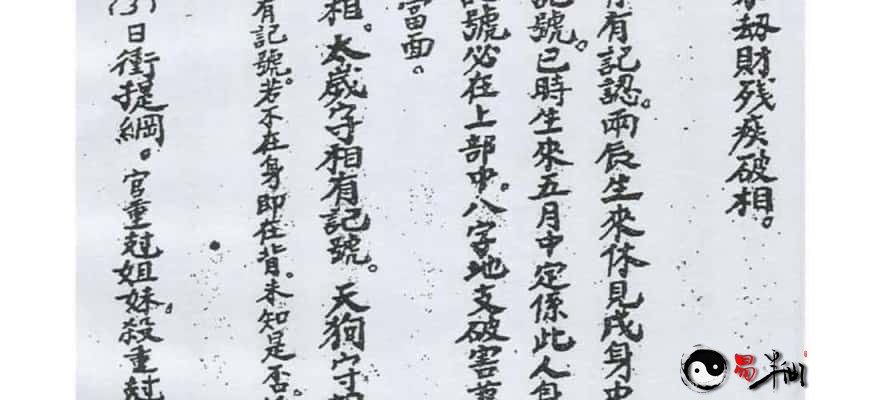 劫財残疾破相。
有記認。両辰生來休見戌身中
記號。已時生來五月中定係此人身
號必在上部中。八字地支破害
富面。
相。太歲守相有記號。天狗守
有記號。若不在身即在背。未知是否
日衝提綱。官重尅姐妹。殺重尅
易半仙